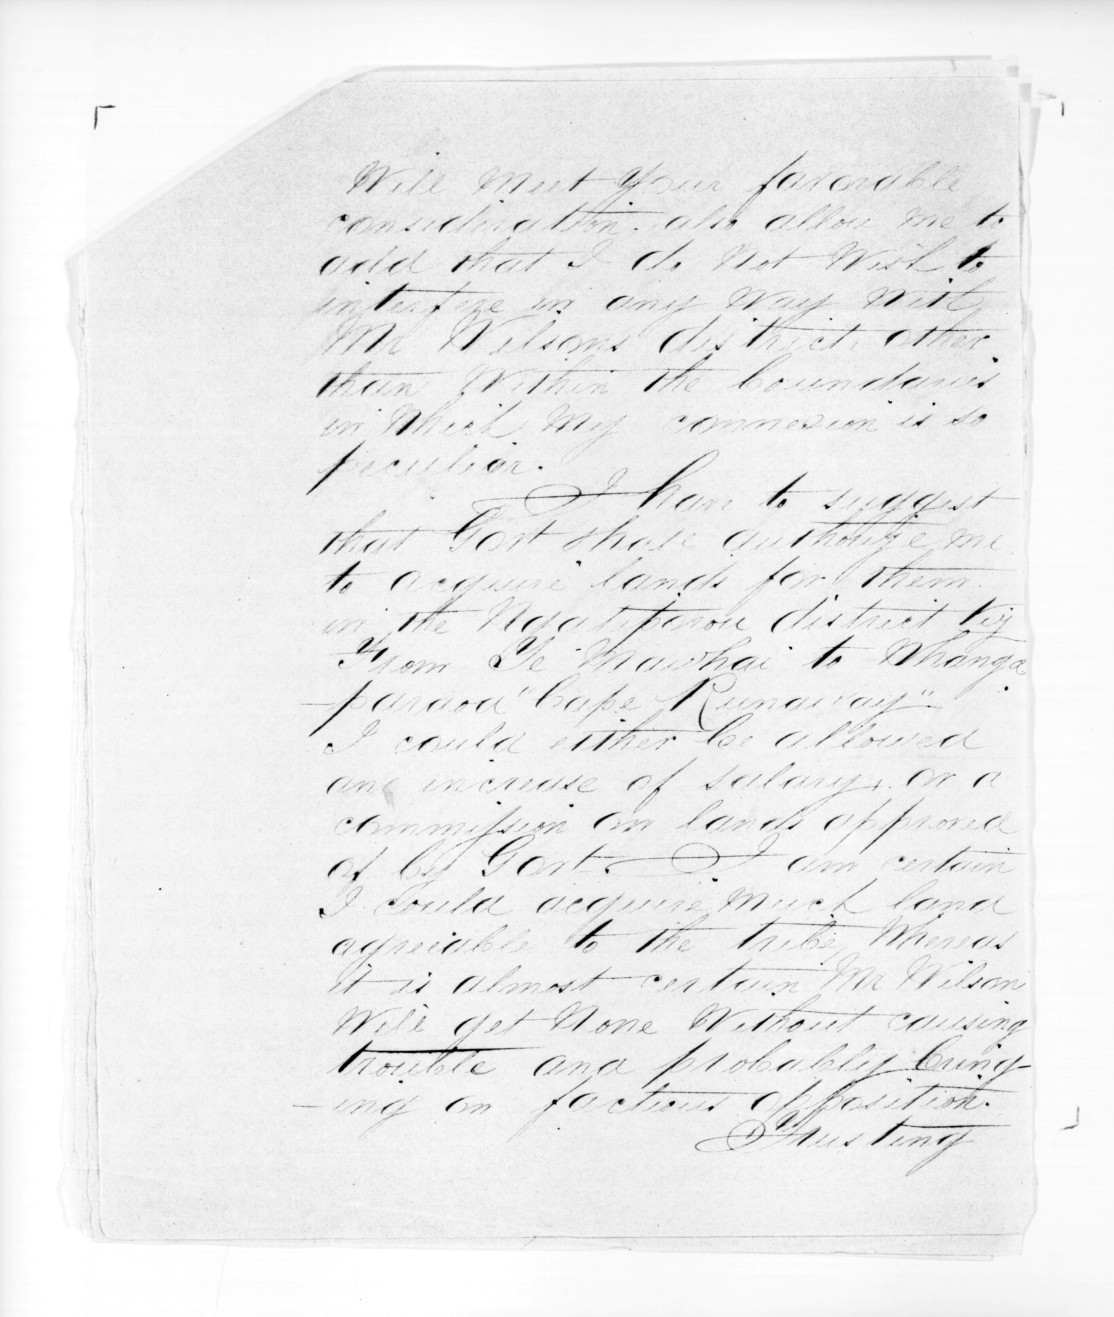 Will meet Your favorable
consideration. also allow me to
add that I do Not Wish to
interfere in any Way With
Mr Wilsons district other
than Within the boundaries
in Which My connexion is so
peculiar.
I have to suggest
that Govt shall authorize me
to acquire lands for them
in the Ngatiporou district Viz
From Te Mawhai to Whanga
-paraoa "Cape Runaway".
I could either be allowed
an increase of salary, or a
commission on lands approved
of by Govt. I am certain
I could acquire Much land
agreeable to the tribe, Whereas
it is almost certain Mr Wilson
Will get None Without causing
trouble and probably bring-
-ing on factious opposition.
Trusting